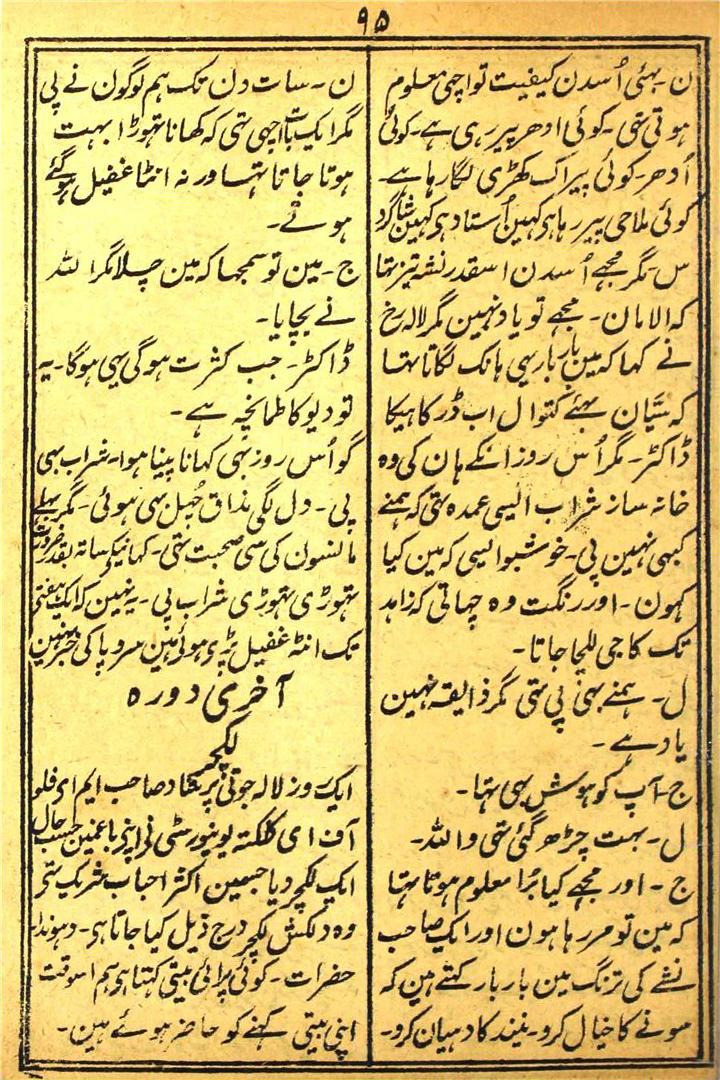 ۹۵
ن۔ بھئی اُسدن کیفیت تو اچھی معلوم
ہوتی تھی۔ کوئی ادھر پیر رہی ہے۔ کوئی
اُدھر۔ کوئی پیراک کھڑی لگا رہا ہے۔
کوئی ملاحی پیر رہا ہی کہین اُستاد ہی کہین شاگرد
س۔ مگر مجھے اُسدن اسقدر نشہ تیز تہا
کہ الامان۔ مجھے تو یاد نہین مگر لالہ رخ
نے کہا کہ مین بار بار یہی ہانک لگاتا تہا
کہ سَیّان بہئے کتوال اب ڈر کاہیکا
ڈاکٹر۔ مگر اُس روز انکے ہان کی وہ
خانہ ساز شراب ایسی عمدہ تہی کہ ہمنے
کبھی نہین پی۔ خوشبو ایسی کہ مین کیا
کہون۔ اور رنگت وہ چہاتی کہ زاہد
تک کا جی للچا جاتا۔
ل۔ ہمنے بہی پی تہی مگر ذایقہ نہین
یاد ہے۔
ج۔ آپ کو ہوش بہی تہا۔
ل۔ بہت چڑھ گئی تہی واللہ۔
ج۔ اور مجھے کیا بُرا معلوم ہوتا تہا
کہ مین تو مر رہا ہون اور ایک صاحب
نشے کی ترنگ مین بار بار کہتے ہین کہ
سونے کا خیال کرو۔ نیند کا دہیان کرو۔
ن۔ سات دن تک ہم لوگون نے پی
مگر ایک بات اچھی تہی کہ کھانا تہوڑا بہت
ہوتا جاتا تہا اور نہ انٹا غفیل ہو گئے
ہوتے۔
ج۔ مین تو سمجہا کہ مین چلا مگر اللہ
نے بچایا۔
ڈاکٹر۔ جب کثرت ہو گی یہی ہوگا۔ یہ
تو دیو کا طمانچہ ہے۔
گو اُس روز بہی کہانا پینا ہوا۔ شراب بہی
پی۔ دل لگی مذاق چُہل بہی ہوئی۔ مگر بہلے
مانسون کی سی صحبت تہی۔ کہانیکے ساتہ بقدر ضرورت
تہوڑی تہوڑی شراب پی۔ یہ نہین کہ ایک ہفتے
تک انٹا غفیل پڑے ہوئی ہین سر و پا کی خبر نہین
آخری دورہ
لکچر
ایک روز لالہ جوتی پرشاد صاحب ایم ای فلو
آف ای کلکتہ یونیورسٹی نی اپنی باغمین حسب حال
ایک لکچر دیا جسمین اکثر احباب شریک تہی
وہ دلکش لکچر درج ذیل کیا جاتا ہی۔ وہوہذا۔
حضرات۔ کوئی پرائی بیتی کہتا ہی ہم اسوقت
اپنی بیتی کہنے کو حاضر ہوئے ہین۔